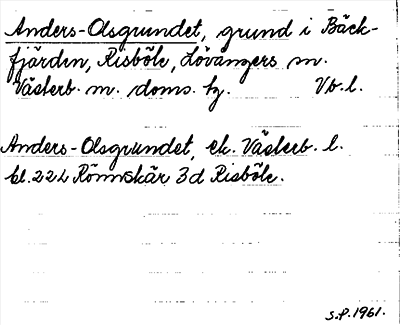 Anders-Olsgrundet, grund i Bäck-
fjärden, Risböle, Lövångers sn.
Västerb. n. doms. hj. Vb. l.
Anders-Olsgrundet, ek. Västerb. l.
bl. 22L Rönnskär 3d Risböle.
S.P. 1961.